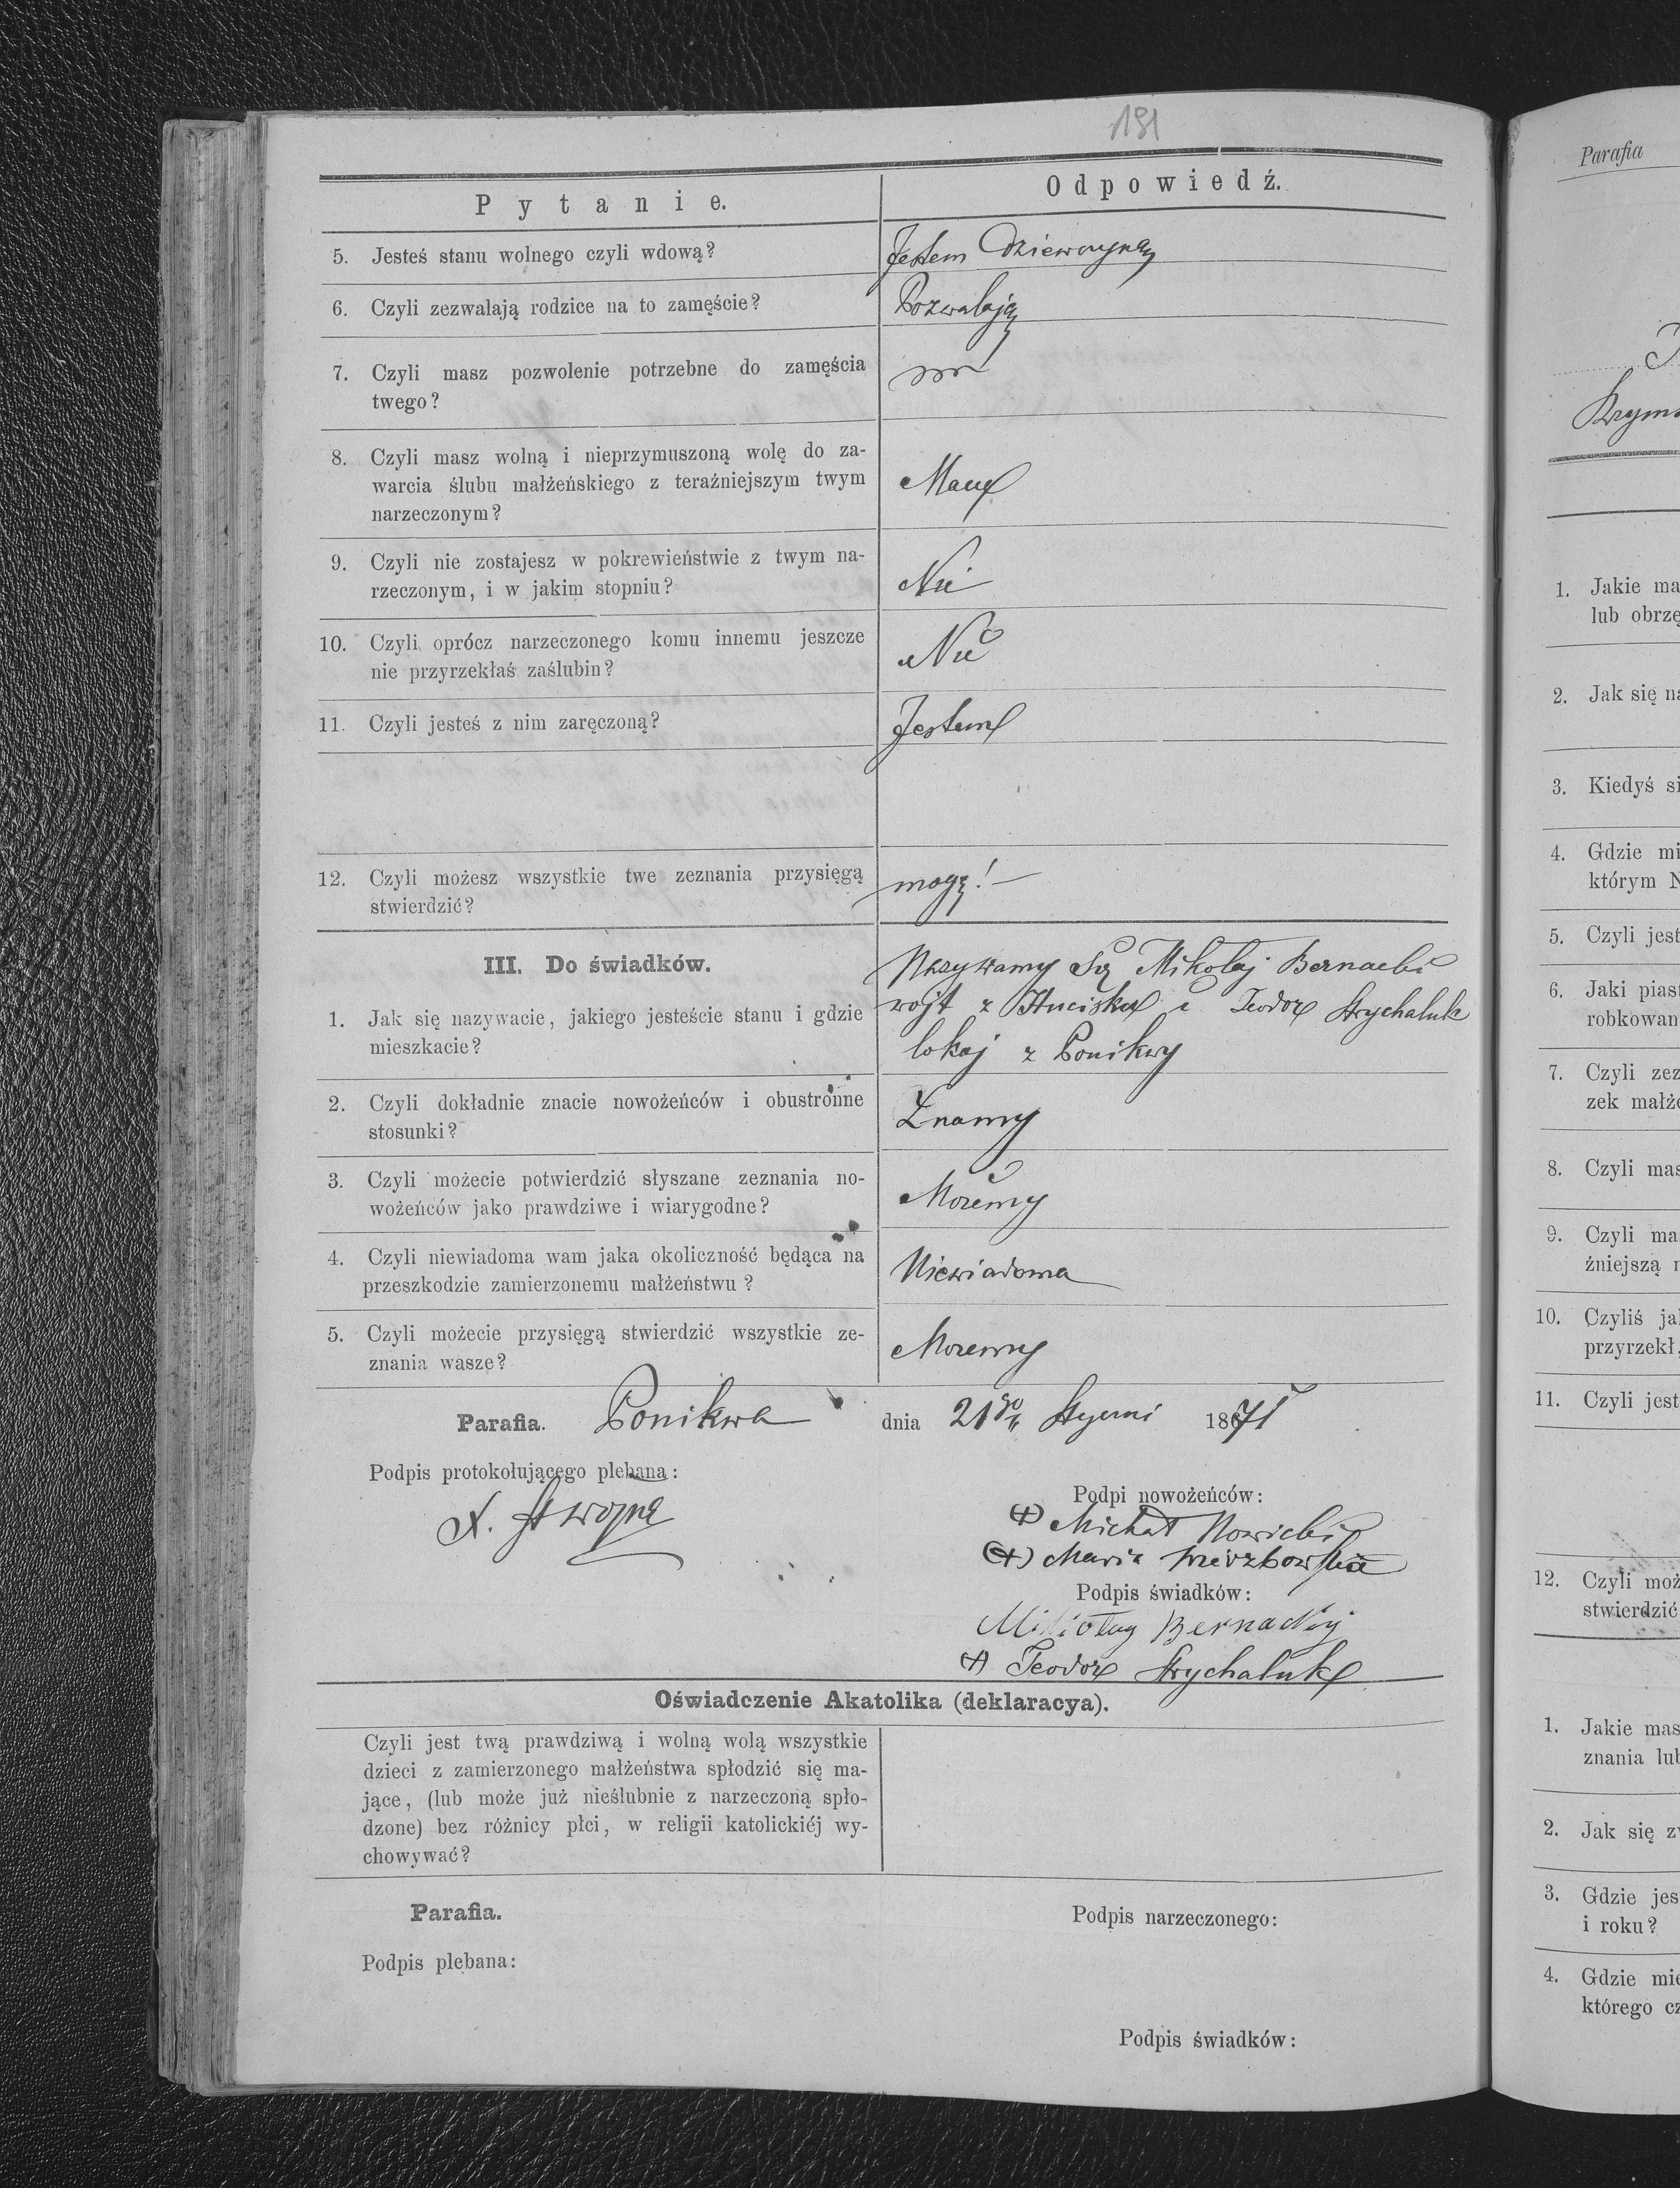 191
Pytanie.
Odpowiedź.
5. Jesteś stanu wolnego czyli wdową?
Jestem Dziewczyną
6. Czyli zezwalają rodzice na to zamęście?
Pozwalają
7. Czyli masz pozwolenie potrzebne do zamęścia
twego?
8. Czyli masz wolną i nieprzymuszoną wolę do za-
warcia ślubu małżeńskiego z teraźniejszym twym
narzeczonym?
Mam
9. Czyli nie zostajesz w pokrewieństwie z twym na-
rzeczonym, i w jakim stopniu?
Nie
10. Czyli oprócz narzeczonego komu innemu jeszcze
nie przyrzekłaś zaślubin?
Nie
11. Czyli jesteś z nim zaręczoną?
Jestem
12. Czyli możesz wszystkie twe zeznania przysięgą
stwierdzić?
mogę! —
III. Do świadków.
1. Jak się nazywacie, jakiego jesteście stanu i gdzie
mieszkacie?
Nazywamy się Mikołaj Bernacki
wojt z Huciska i Teodor Strychaluk
lokaj z Ponikwy
2. Czyli dokładnie znacie nowożeńców i obustronne
stosunki?
Znamy
3. Czyli możecie potwierdzić słyszane zeznania no-
wożeńców jako prawdziwe i wiarygodne?
Możemy
4. Czyli niewiadoma wam jaka okoliczność będąca na
przeszkodzie zamierzonemu małżeństwu?
Niewiadoma
5. Czyli możecie przysięgą stwierdzić wszystkie ze-
znania wasze?
Mozemy
Parafia. Ponikwa dnia 21go 1871
Podpis protokołującego plebana:
Podpi nowożeńców:
(+) Michał Nowicki
(+) Maria Wierzbowska
Podpis świadków:
Mikołay Bernackiy
(+) Teodor Strychaluk
Oświadczenie Akatolika (deklaracya).
Czyli jest twą prawdziwą i wolną wolą wszystkie
dzieci z zamierzonego małżeństwa spłodzić się ma-
jące, (lub może już nieślubnie z narzeczoną spło-
dzone) bez różnicy płci, w religii katolickiéj wy-
chowywać?
Parafia.
Podpis narzeczonego:
Podpis plebana:
Podpis świadków:
Parafia
1. Jakie ma
lub obrzę
2. Jak się na
3. Kiedyś si
4. Gdzie mi
którym N
5. Czyli jest
6. Jaki piast
robkowan
7. Czyli zez
zek małż
8. Czyli mas
9. Czyli ma
źniejszą n
10. Czyliś jak
przyrzekł,
11. Czyli jest
12. Czyli moż
stwierdzić
1. Jakie mas
znania lub
2. Jak się z
3. Gdzie jes
i roku?
4. Gdzie mie
którego cz